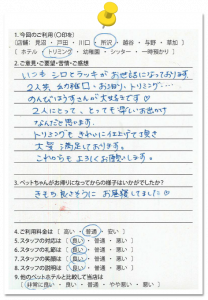 1. 今回のご利用(○印を)
[店舗: 見沼 ・ 戸田 ・ 川口 ・ 所沢 ・ 越谷 ・ 与野 ・ 草加]
[ホテル ・ トリミング ・ 幼稚園 ・ シッター ・ 一時預かり]
2. ご意見・ご要望・苦情・ご感想
いつもシロとラッキーがお世話になっております。
2人共、
のんびりほうきさんが大好きです♡
2人にとって、とっても楽しいお出かけ
なんだと思います。
トリミングもきれいに仕上げて頂き
大変満足しております。
これからもよろしくお願いします。
3. ペットちゃんがお帰りになってからの様子はいかがでしたか?
きもち良さそうにお昼寝してました♡
4. ご利用料金は [ 高い ・ 普通 ・ 安い ]
5. スタッフの対応は [ 良い ・ 普通 ・ 悪い ]
6. スタッフの礼節は [ 良い ・ 普通 ・ 悪い ]
7. スタッフの説明は [ 良い ・ 普通 ・ 悪い ]
8. スタッフの印象は [ 良い ・ 普通 ・ 悪い ]
9. 他のペットホテルと比較して当店は
[非常に良い ・ 良い ・ 普通 ・ やや悪い ・ 悪い]